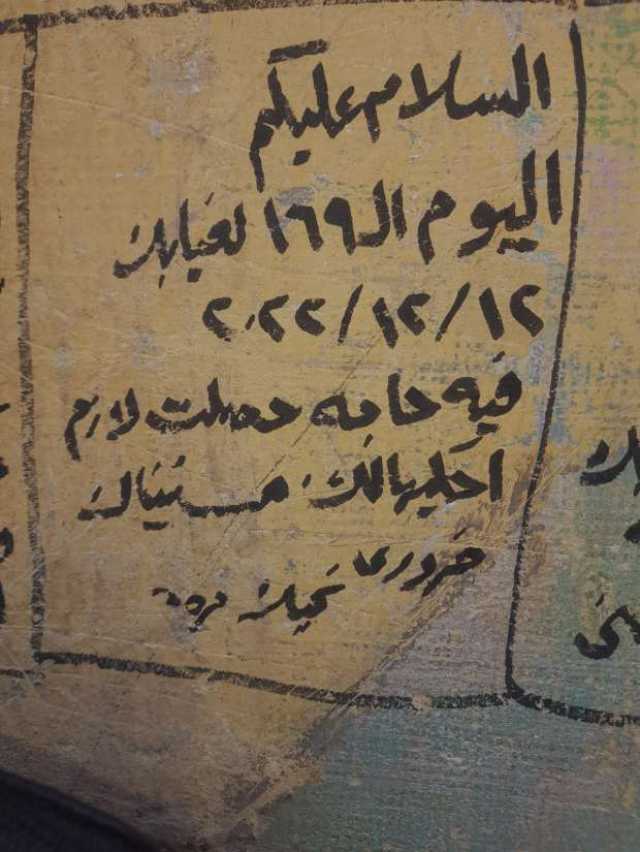 السلام عليكم
اليوم الـ ١٦٩ لغيابك
١٢/١٢/٢٠٢٢
فيه حاجه حصلت لازم
احكيهالك مستنياك
ضروري